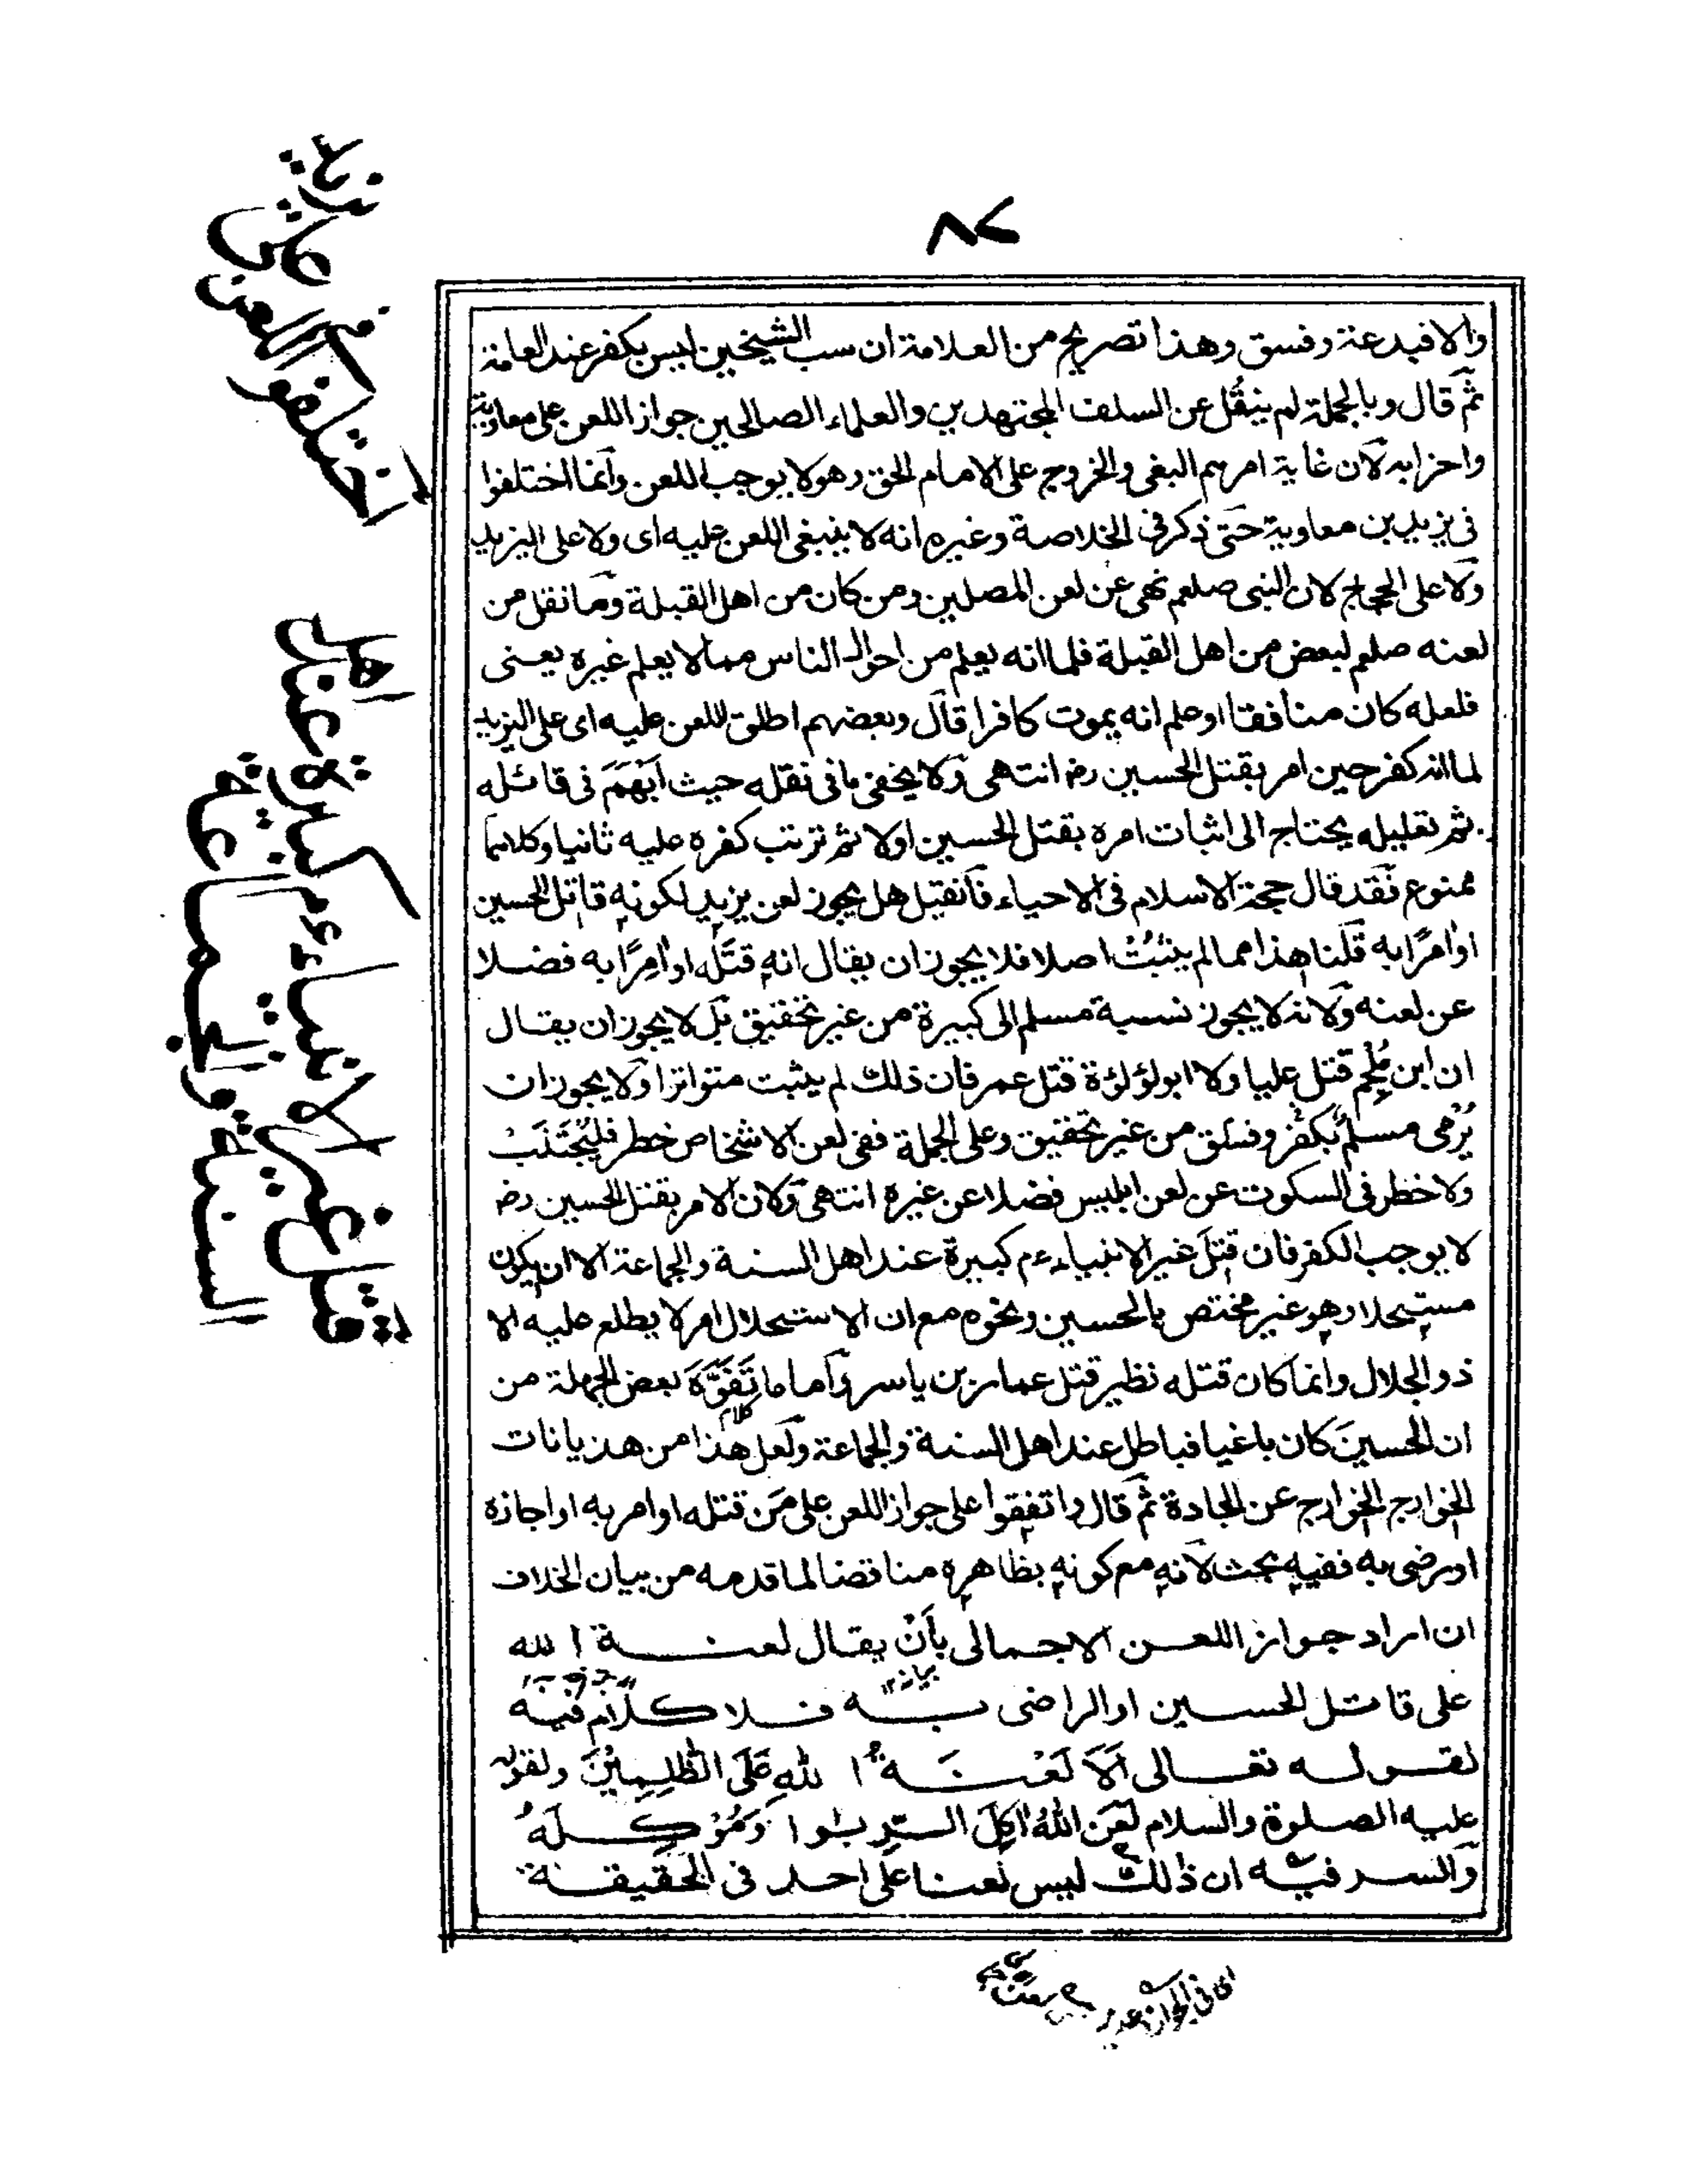 ٨٧
والا فبدعة وفسق وهذا تصريح من العلامة ان سب الشيخين ليس بكفر عند العامة
ثم قال وبالجملة لم ينقل عن السلف المجتهدين والعلماء الصالحين جواز اللعن على معاوية
واحزابه لان غاية امرهم البغى والخروج على الامام الحق وهو لا يوجب اللعن وانما اختلفوا
فى يزيد بن معاوية حتى ذكر فى الخلاصة وغيره انه لا ينبغى اللعن عليه اى ولا على اليزيد
ولا على الحجاج لان النبى صلعم نهى عن لعن المصلين ومن كان من اهل القبلة وما نقل من
لعنه صلعم لبعض من اهل القبلة فلما انه يعلم من احوال الناس مما لا يعلم غيره يعنى
فلعله كان منافقا او علم انه يموت كافرا قال وبعضهم اطلق اللعن عليه اى على اليزيد
لما انه كفر حين امر بقتل الحسين رض انتهى ولا يخفى ما فى نقله حيث ابهم فى قائله
ثم تعليله يحتاج الى اثبات امره بقتل الحسين اولا ثم ترتب كفره عليه ثانيا وكلاهما
ممنوع فقد قال حجة الاسلام فى الاحياء فان قيل هل يجوز لعن يزيد لكونه قاتل الحسين
او امرًا به قلنا هذا مما لم يثبُتْ اصلا فلا يجوز ان يقال انه قتَلَه او امِرًا به فضلا
عن لعنه ولانه لا يجوز نسبة مسلم الى كبيرة من غير تحقيق بل لا يجوز ان يقال
ان ابن مُلْجِم قتل عليا ولا ابو لؤلؤة قتل عمر فان ذلك لم يثبت متواترا ولا يجوز ان
يُرْمى مسلمٌ بكفر وفسق من غير تحقيق وعلى الجملة ففى لعن الاشخاص خطر فليُجْتَنَبْ
ولا خطر فى السكوت عن لعن ابليس فضلا عن غيره انتهى ولان الامر بقتل الحسين رض
لا يوجب الكفر فان قتلَ غير الانبياء ءم كبيرة عند اهل السنة والجماعة الا ان يكون
مستحلا وهو غير مختص بالحسين ونحوه مع ان الاستحلال امر لا يطلع عليه الا
ذو الجلال وانما كان قتله نظير قتل عمار بن ياسر واما ما تَفَوَّهَ بعض الجهلة من
ان الحسينَ كان باغيا فباطل عند اهل السنة والجماعة ولعل هذا من هذيانات
الخوارج الخوارج عن الجادة ثم قال واتفقوا على جواز اللعن على مَن قتله او امر به او اجازه
او رضى به ففيه بحث لانه مع كونه بظاهره مناقضا لما قدمه من بيان الخلاف
ان اراد جواز اللعن الاجمالى بأنْ يقال لعنة الله
على قاتل الحسين او الراضى به فلا كلام فيه
لقوله تعالى اَلَا لَعْنَةُ اللهِ عَلَى الظّٰلِمِيْنَ ولقوله
عليه الصلوة والسلام لَعَن اللهُ اٰكِلَ الرِّبٰوا وَمُؤْكِلَهُ
والسر فيه ان ذلك ليس لعنا على احد فى الحقيقة
اختلفوا فى اللعن على يزيد
قتل غير الانبياء ءم كبيرة عند اهل
السنة والجماعة